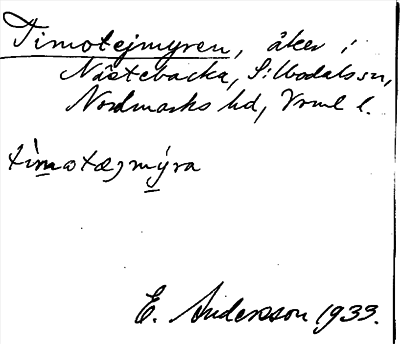 Timotejmyren, åker i
Nästebacka, Sillbodals sn,
Nordmarks hd, Vrml l.
tìmotæjmýra
E. Andersson 1933.